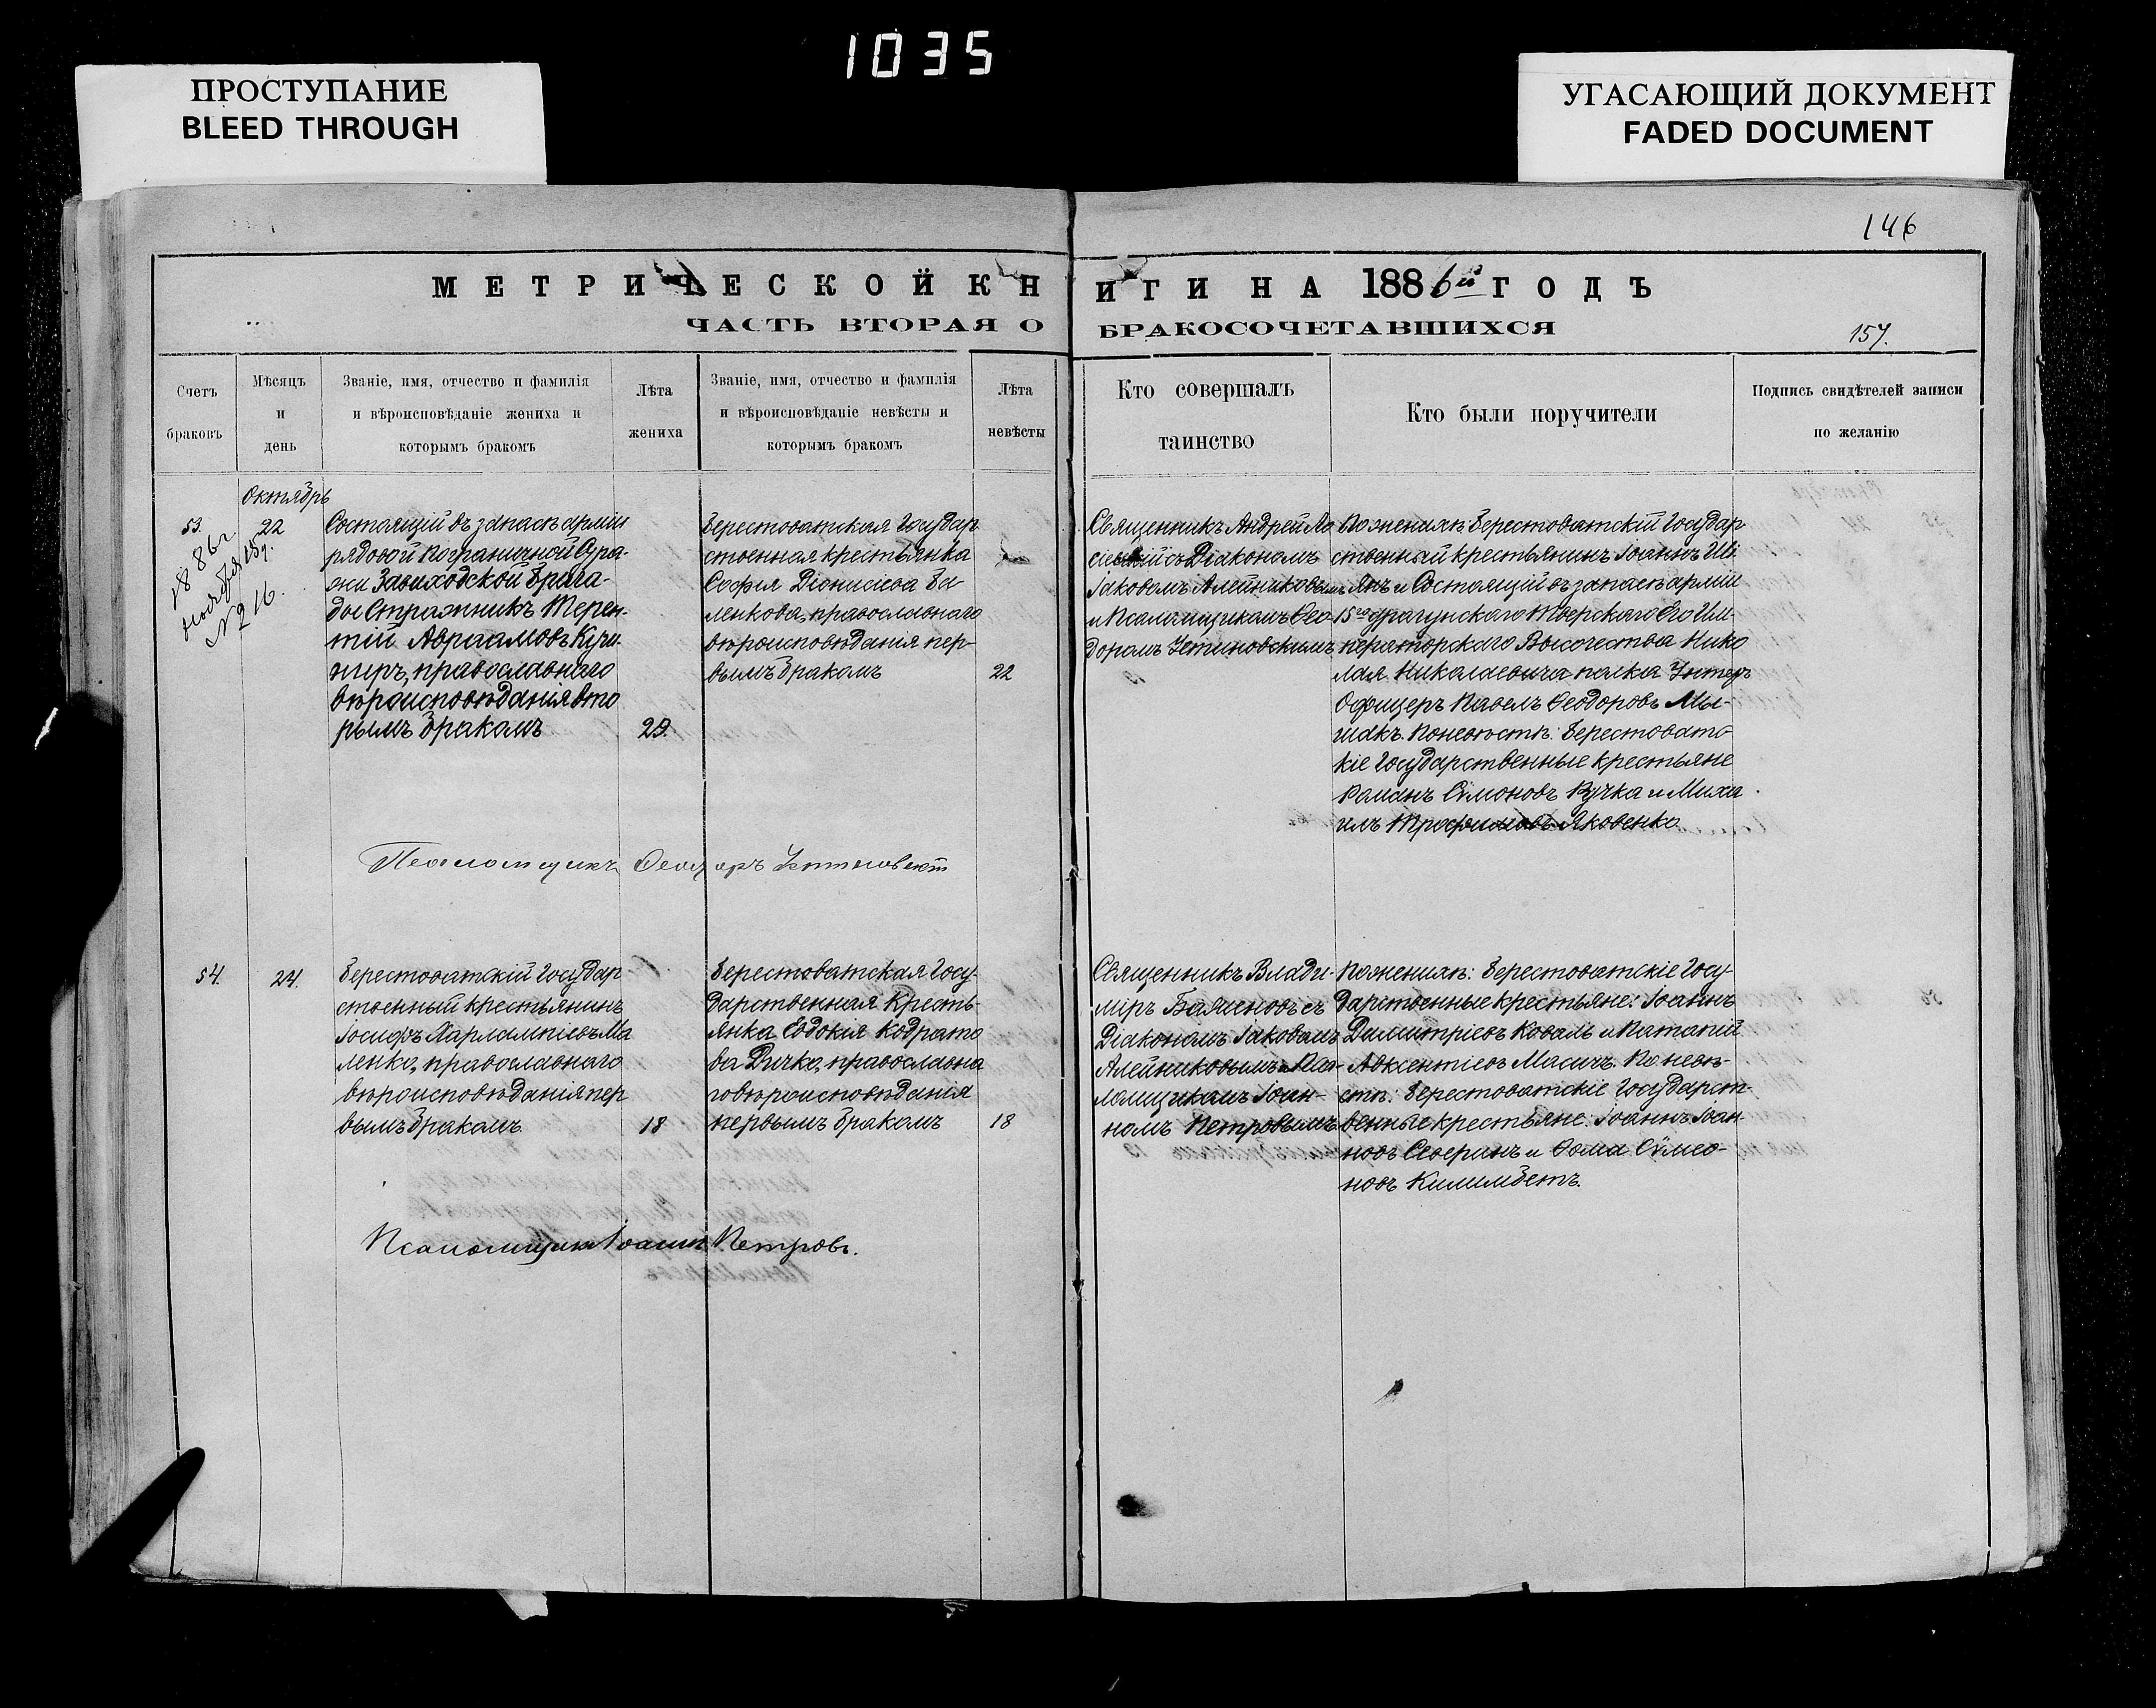 1035
ПРОСТУПАНИЕ
BLEED THROUGH
УГАСАЮЩИЙ ДОКУМЕНТ
FADED DOCUMENT
146
МЕТРИЧЕСКОЙ КНИГИ НА 1886й ГОДЪ
ЧАСТЬ ВТОРАЯ О БРАКОСОЧЕТАВШИХСЯ
157.
Счетъ
браковъ
Мѣсяцъ
и
день
Званіе, имя, отчество и фамилія
и вѣроисповѣданіе жениха и
которымъ бракомъ
Лѣта
жениха
Званіе, имя, отчество и фамилія
и вѣроисповѣданіе невѣсты и
которымъ бракомъ
Лѣта
невѣсты
Кто совершалъ
таинство
Кто были поручители
Подпись свидѣтелей записи
по желанію
Октябрь
53.
22
1886 г.
ноября
№ 216.
Состоящій въ запасѣ арміи
рядовой пограничной Стра-
жи
ды Стражникъ Терен-
тій Авраамовъ
православнаго
вѣроисповѣданія вто
рымъ бракомъ
29.
Берестоватская Государ
ственная крестьянка
Софія Діонисіева За
ленкова, православнаго
вѣроисповѣданія пер-
вымъ бракомъ
22
Священникъ Андрей
съ Діакономъ
Іаковомъ Алейниковымъ
и Псаломщикомъ Ѳео
доромъ Устиновскимъ
По женихѣ: Берестоватскій Государ
ственный крестьянинъ Іоаннъ
и Состоящій въ запасѣ арміи
15го драгунскаго Тверскаго Его Им-
ператорскаго Высочества Нико
лая Николаевича полка Унтеръ
Офицеръ Павелъ Ѳеодоровъ Мы-
шакъ. По невѣстѣ: Берестоватс
кіе Государственные крестьяне
Романъ Симоновъ Кучка и Миха
илъ Трофимовъ Яковенко
Псаломщикъ Ѳеодоръ Устиновскій
54.
24.
Берестоватскій Государ
ственный крестьянинъ
Іосифъ Харлампіевъ Ма
ленко, православнаго
вѣроисповѣданія пер
вымъ бракомъ
18
Берестоватская Госу-
дарственная кресть-
янка Евдокія Кодрато
ва Дичко, православна
го вѣроисповѣданія
первымъ бракомъ
18
Священникъ Влади-
міръ Баженовъ съ
Діакономъ Іаковомъ
Алейниковымъ и Пса-
ломщикомъ Іоан-
номъ Петровымъ
По женихѣ: Берестоватскіе Госу-
дарственные крестьяне: Іоаннъ
Димитріевъ Коваль и Патапій
Авксентіевъ Масичъ. По невѣ-
стѣ: Берестоватскіе Государст-
венные крестьяне: Іоаннъ Іоан
новъ Северинъ и Ѳома Сѵмео-
новъ Килимбетъ.
Псаломщикъ Іоаннъ Петровъ.